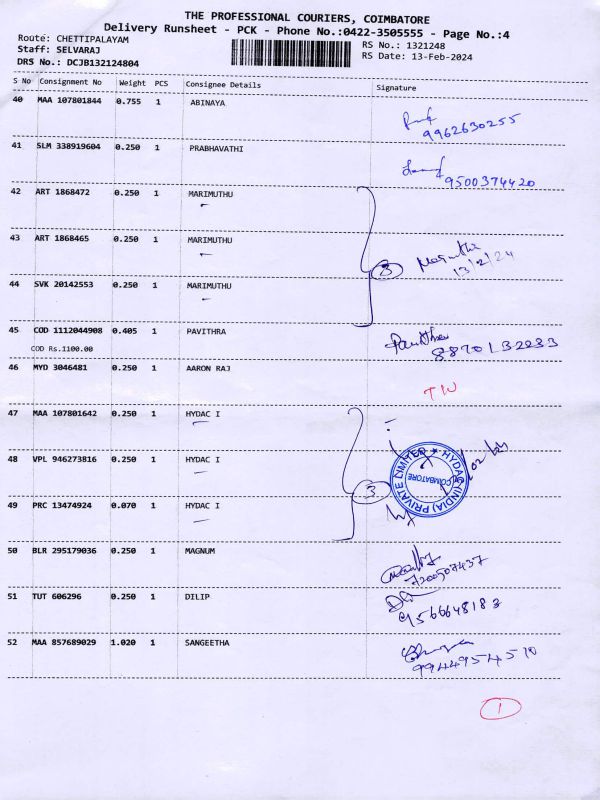 THE PROFESSIONAL COURIERS, COIMBATORE
Delivery Runsheet - PCK - Phone No.:0422-3505555 - Page No.:4
Route: CHETTIPALAYAM
RS No.: 1321248
Staff: SELVARAJ
RS Date: 13-Feb-2024
DRS No.: DCJB132124804
S No Consignment No Weight PCS Consignee Details Signature
40 MAA 107801844 0.755 1 ABINAYA
9962630255
41 SLM 338919604 0.250 1 PRABHAVATHI
9500374420
42 ART 1868472 0.250 1 MARIMUTHU
43 ART 1868465 0.250 1 MARIMUTHU
3
13/2/24
44 SVK 20142553 0.250 1 MARIMUTHU
45 COD 1112044908 0.405 1 PAVITHRA
COD Rs.1100.00
8870132233
46 MYD 3046481 0.250 1 AARON RAJ
47 MAA 107801642 0.250 1 HYDAC I
48 VPL 946273816 0.250 1 HYDAC I
3
HYDAC (INDIA) PRIVATE LIMITED
COIMBATORE
49 PRC 13474924 0.070 1 HYDAC I
50 BLR 295179036 0.250 1 MAGNUM
7200507437
51 TUT 606296 0.250 1 DILIP
9566648183
52 MAA 857689029 1.020 1 SANGEETHA
9944954510
1